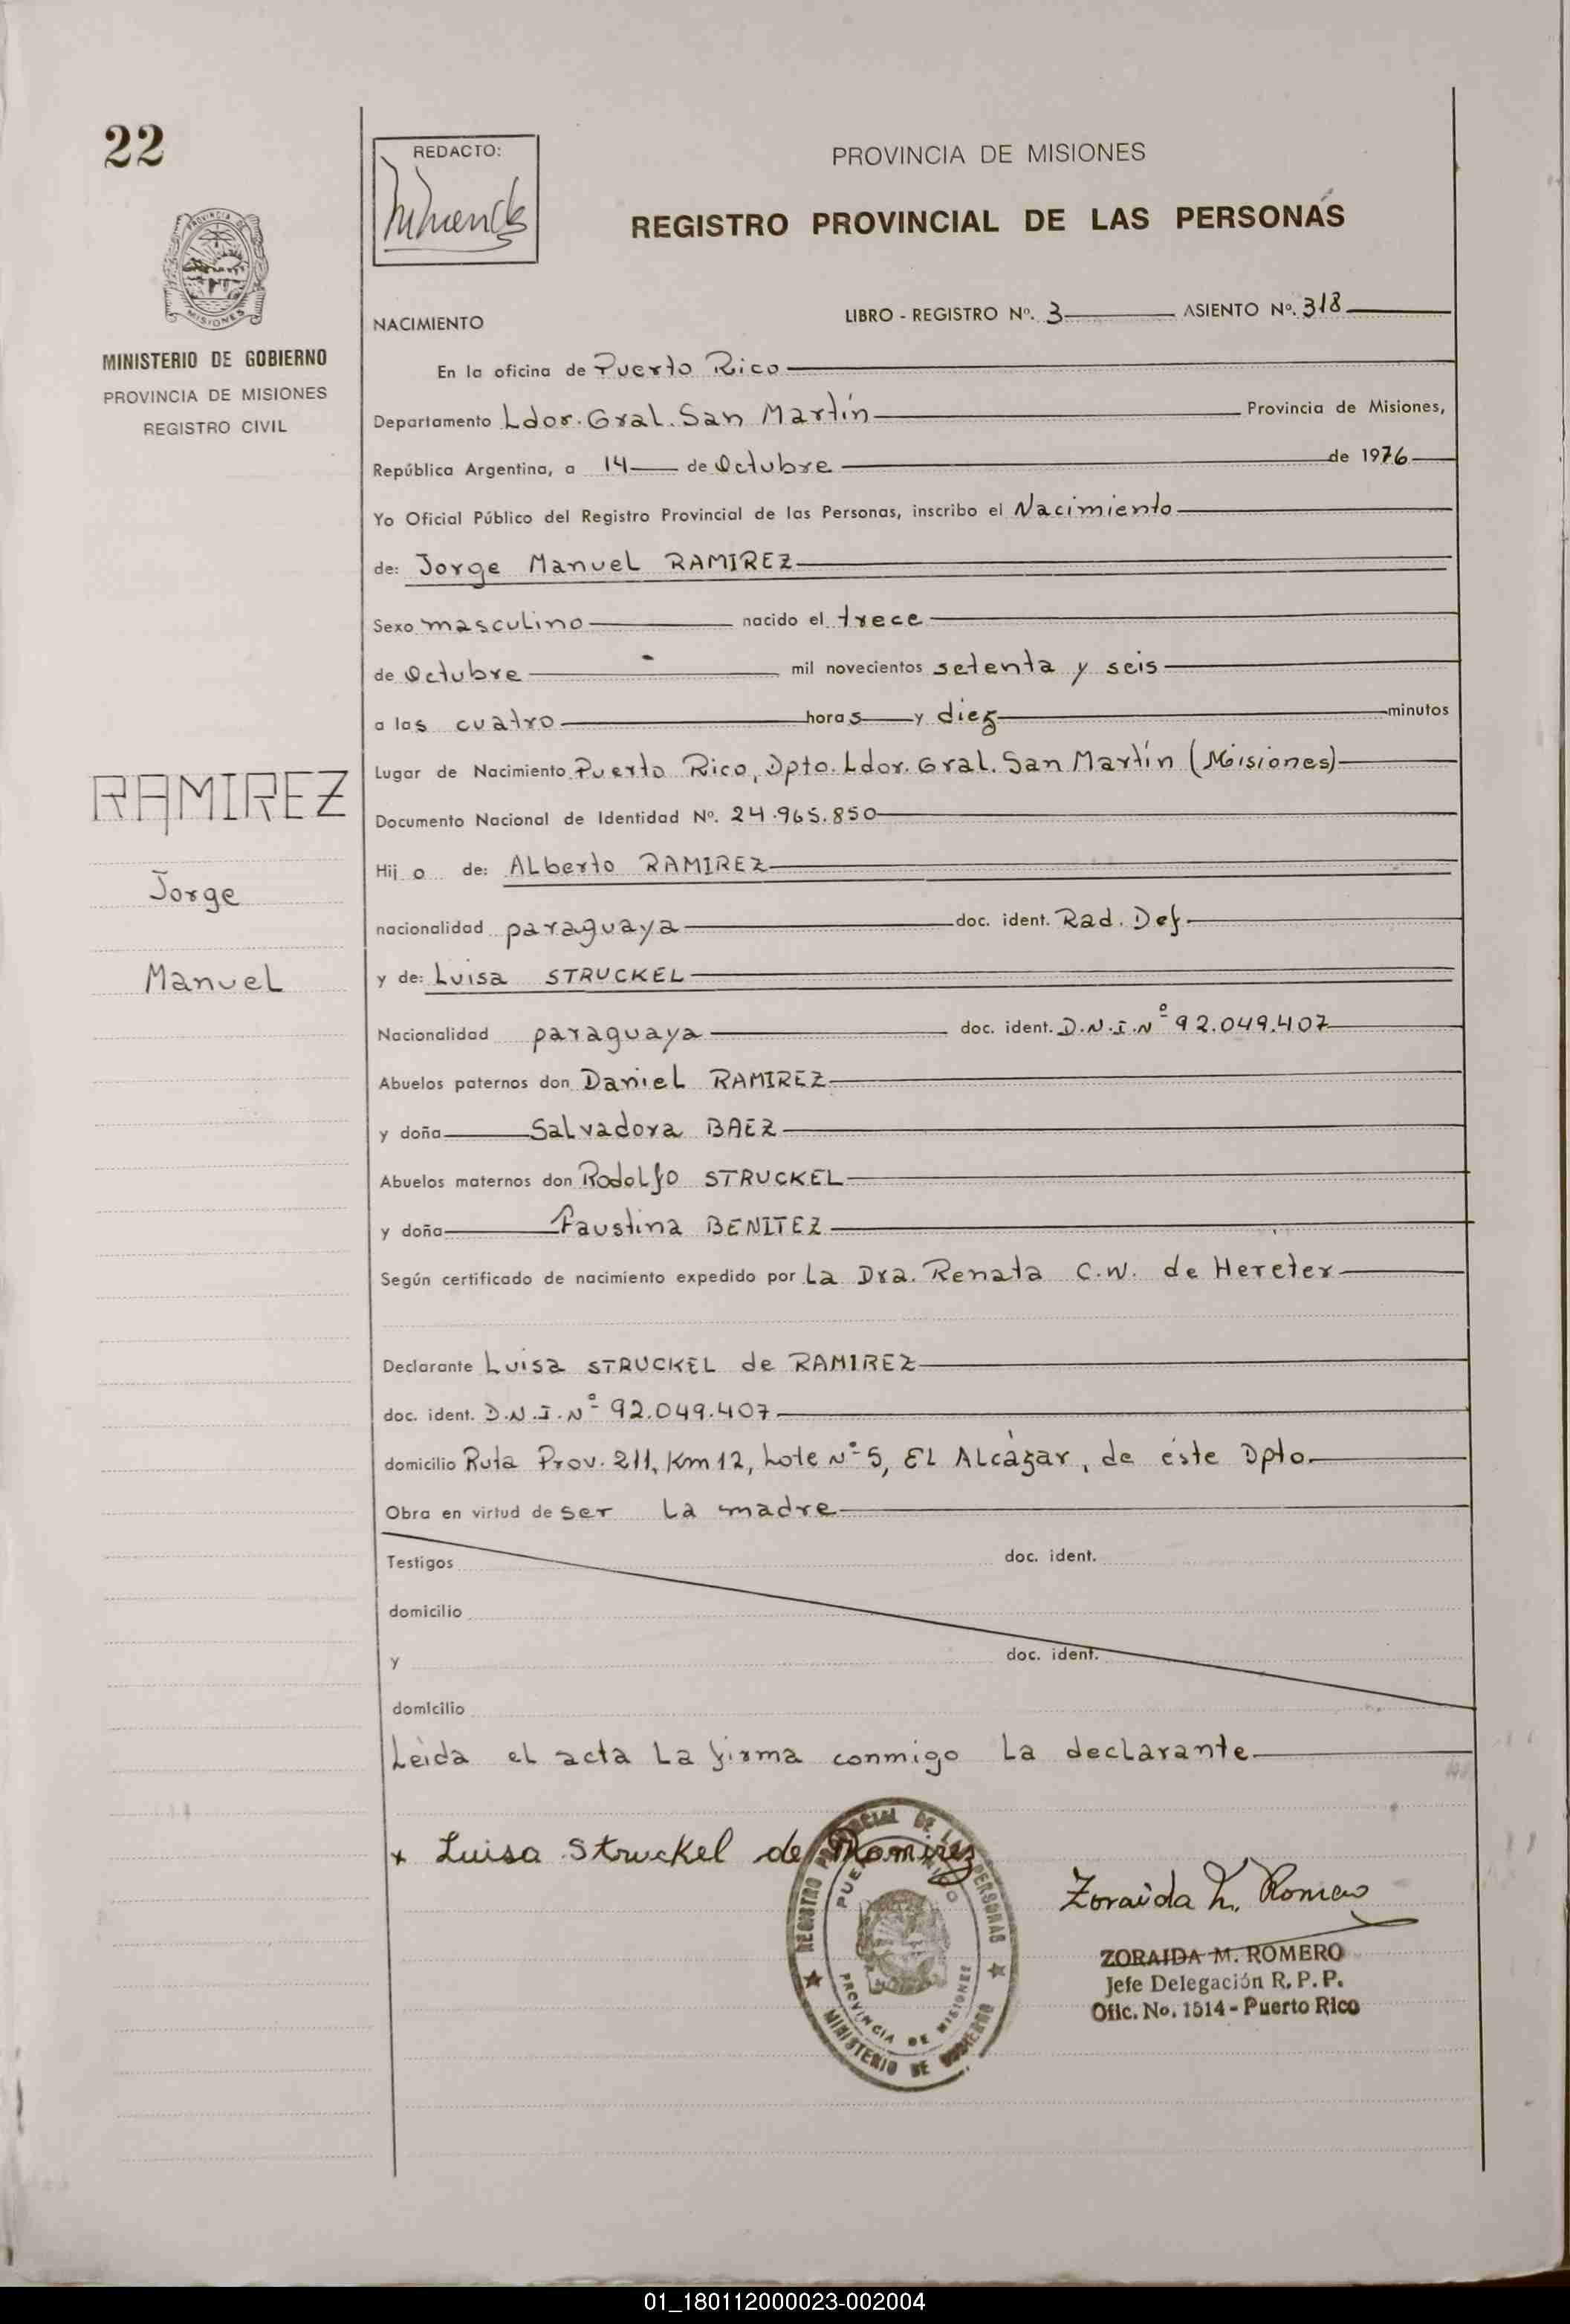 22
PROVINCIA DE MISIONES
MINISTERIO DE GOBIERNO
PROVINCIA DE MISIONES
REGISTRO CIVIL
RAMIREZ
Jorge
Manuel
REDACTO:
PROVINCIA DE MISIONES
REGISTRO PROVINCIAL DE LAS PERSONAS
NACIMIENTO LIBRO - REGISTRO Nº. 3 ASIENTO Nº. 318
En la oficina de Puerto Rico
Departamento Ldor. Gral. San Martín Provincia de Misiones,
República Argentina, a 14 de Octubre de 1976
Yo Oficial Público del Registro Provincial de las Personas, inscribo el Nacimiento
de: Jorge Manuel RAMIREZ
Sexo masculino nacido el trece
de Octubre mil novecientos setenta y seis
a las cuatro horas y diez minutos
Lugar de Nacimiento Puerto Rico, Dpto. Ldor. Gral. San Martín (Misiones)
Documento Nacional de Identidad Nº. 24.965.850
Hijo de: ALberto RAMIREZ
nacionalidad paraguaya doc. ident. Rad. Def.
y de: Luisa STRUCKEL
Nacionalidad paraguaya doc. ident. D.N.I.Nº 92.049.407
Abuelos paternos don Daniel RAMIREZ
y doña Salvadora BAEZ
Abuelos maternos don Rodolfo STRUCKEL
y doña Faustina BENITEZ
Según certificado de nacimiento expedido por La Dra. Renata C.W. de Hereter
Declarante Luisa STRUCKEL de RAMIREZ
doc. ident. D.N.I.Nº 92.049.407
domicilio Ruta Prov. 211, Km 12, Lote Nº 5, EL Alcázar, de éste Dpto.
Obra en virtud de ser La madre
Testigos doc. ident.
domicilio
y doc. ident.
domicilio
Leída el acta La firma conmigo La declarante
x Luisa Struckel de Ramirez
REGISTRO PROVINCIAL DE LAS PERSONAS
PUERTO RICO
PROVINCIA DE MISIONES
MINISTERIO DE GOBIERNO
Zoraida M. Romero
ZORAIDA M. ROMERO
Jefe Delegación R. P. P.
Ofic. No. 1514 - Puerto Rico
01_180112000023-002004